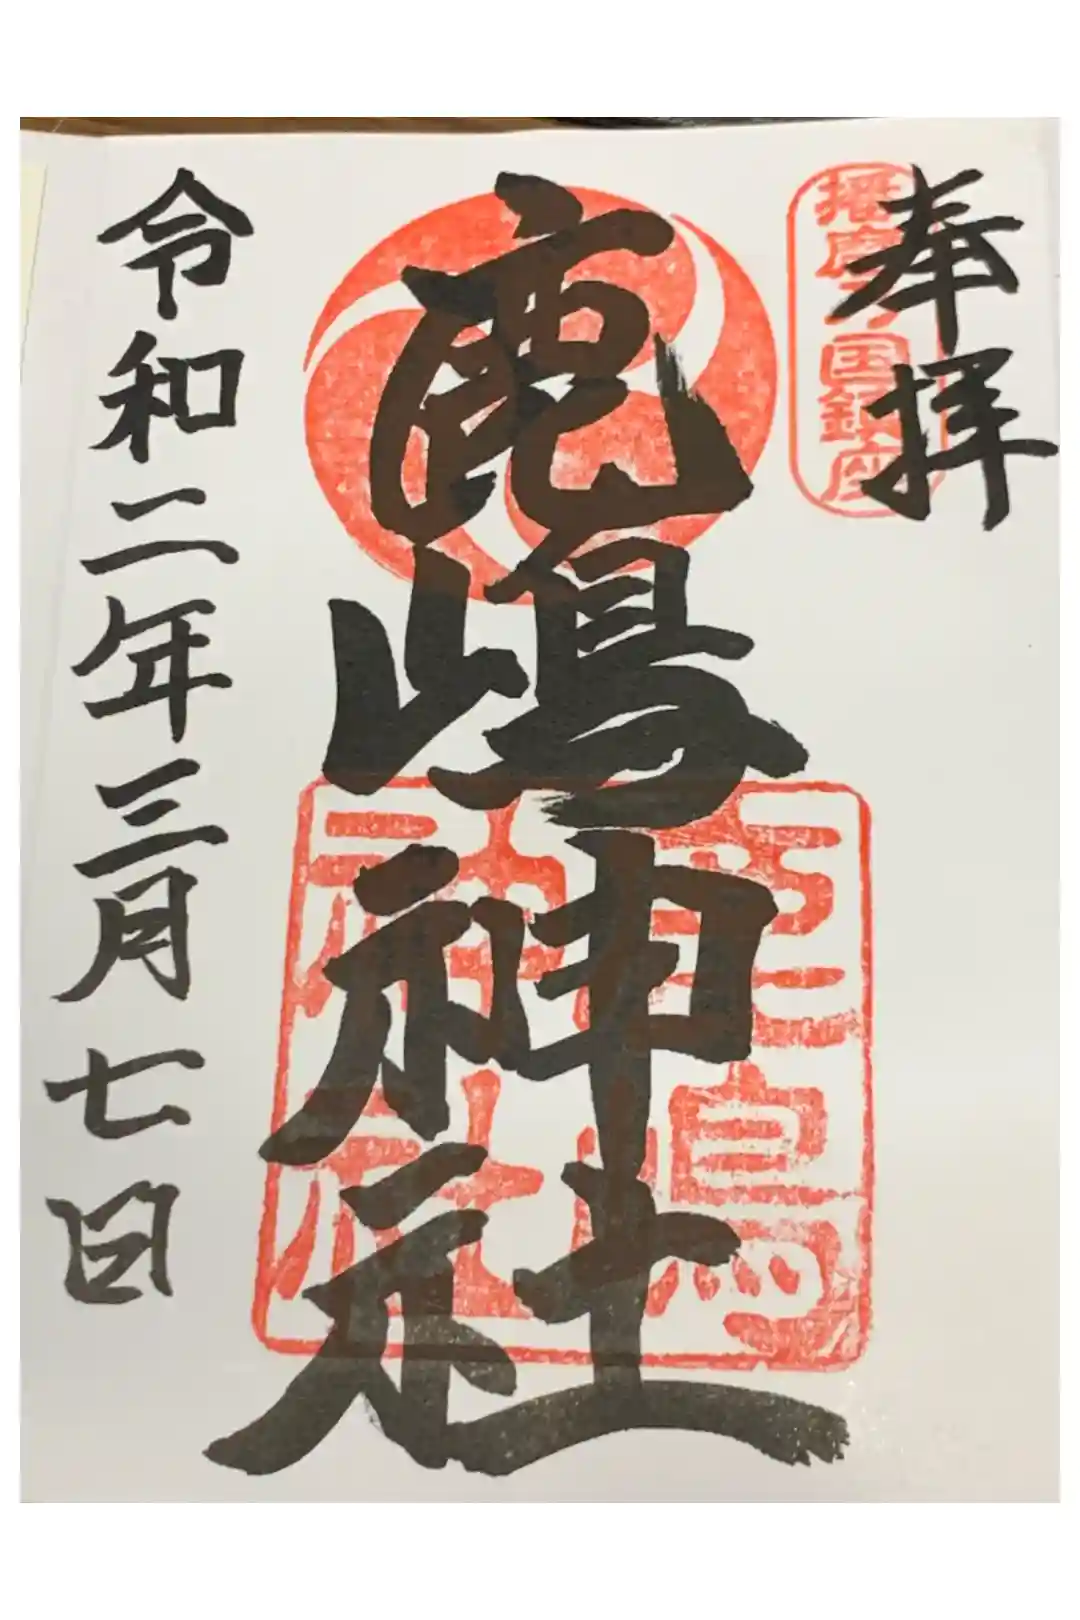 奉拝
播磨乃国鎮座
鹿嶋神社
鹿嶋神社
令和二年三月七日